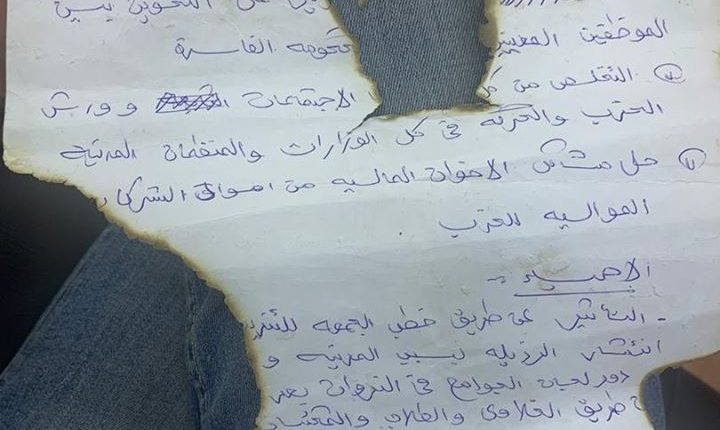 على التخوين بين
الموظفين المعينين حكومه الفاسدة
التخلص من الاجتماعات وورش
الحزب والحركة في كل الوزارات والمنظمات المدنية
حل مشاكل الاخوان الماليه من اموال الشركات
المواليه للحزب
الاحياء :-
- التأثير عن طريق خطب الجمعه للتنديد
انتشار الرذيله بسبب المدنيه و
دور لجان الجوامع في الندوات
طريق الخلاوي والطلاب والمكتبات